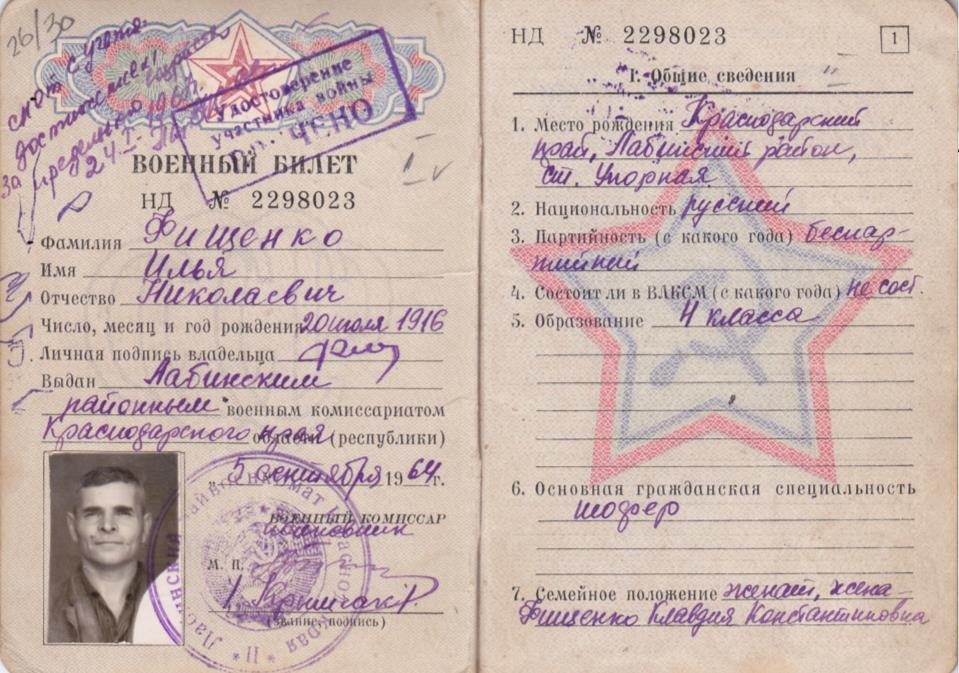 26/30
снят с учета
За достижением
предельного возраста
24-I-1967г.
Удостоверение
участника войны
ЧЕНО
ВОЕННЫЙ БИЛЕТ
НД № 2298023
Фамилия Фищенко
Имя Илья
Отчество Николаевич
Число, месяц и год рождения 20 июля 1916
Личная подпись владельца
Выдан Лабинским
районным военным комиссариатом
Краснодарского края области (республики)
„5 сентября 1964г.
ВОЕННЫЙ КОМИССАР
полковник
М. П.
(звание, подпись)
НД № 2298023
1
I. Общие сведения
1. Место рождения Краснодарский
край, Лабинский район,
ст. Упорная
2. Национальность русский
3. Партийность (с какого года) беспар-
тийный
4. Состоит ли в ВЛКСМ (с какого года) не сост.
5. Образование 4 класса
6. Основная гражданская специальность
шофер
7. Семейное положение женат, жена-
Фищенко Клавдия Константиновна